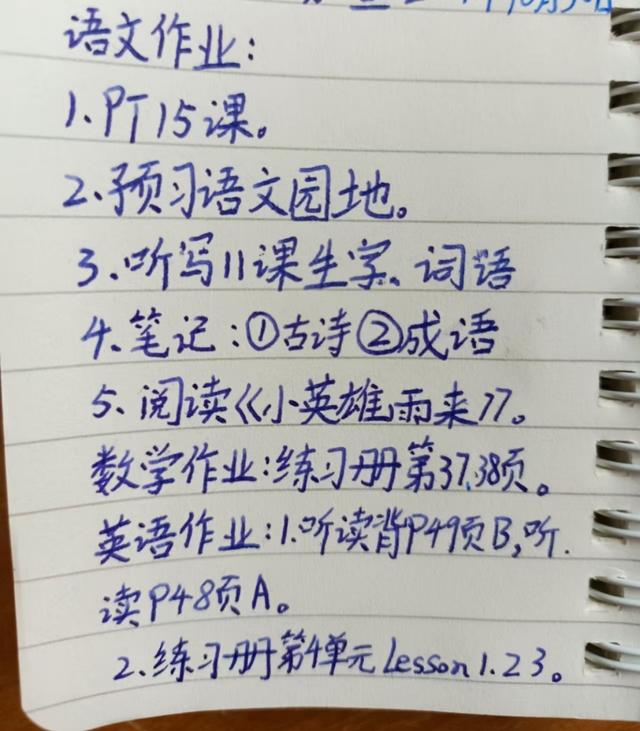 语文作业:
1.PT15课。
2、预习语文园地。
3.听写11课生字、词语
4、笔记:①古诗②成语
5、阅读《小英雄雨来》。
数学作业:练习册第37.38页。
英语作业:1.听读背P49页B,听.
读P48页A。
2.练习册第4单元Lesson1.2 3。